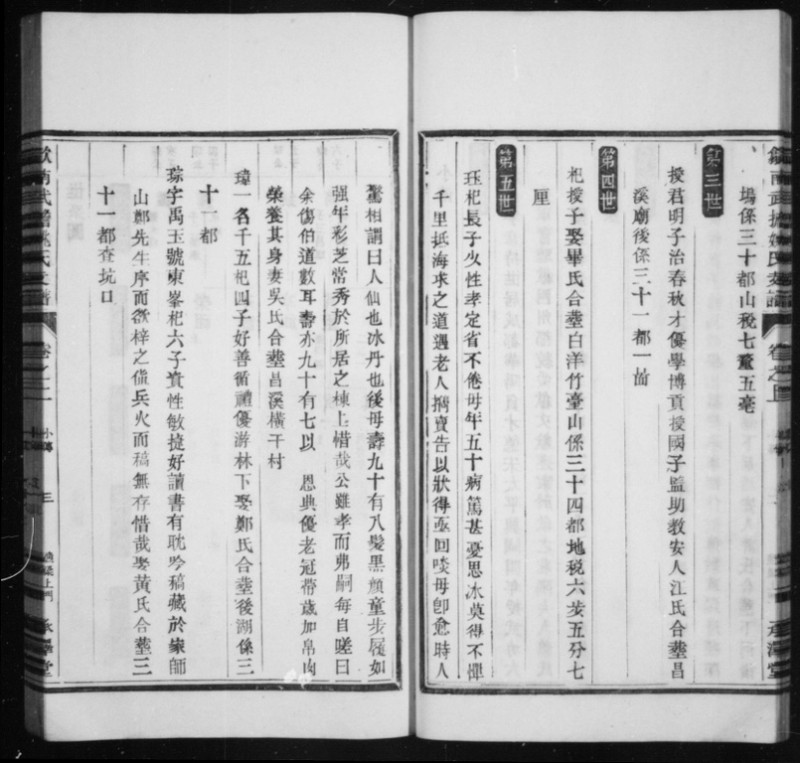 塢係三十都山稅七釐五毫
第三世
授君明子治春秋才優學博貢授國子監助教安人江氏合塟昌
溪廟後係三十一都一啚
第四世
祀授子娶畢氏合塟白洋竹臺山係三十四都地稅六𠭇五分七
厘
第五世
珏祀長子少性孝定省不倦母年五十病篤甚憂思冰莫得不憚
千里抵海求之道遇老人擕賣告以狀得亟回啖母卽愈時人
驚相謂曰人仙也冰丹也後母壽九十有八髮黑顏童步履如
强年彩芝常秀於所居之棟上惜哉公雖孝而弗嗣每自嗟曰
余傷伯道數耳壽亦九十有七以 恩典優老冠帶歲加帛肉
榮養其身妻吳氏合塟昌溪橫干村
瑋一名千五祀四子好善循禮優游林下娶鄭氏合塟後湖係三
十一都
琮字禹玉號東峯祀六子資性敏捷好讀書有耽吟稿藏於縣師
山鄭先生序而欲梓之值兵火而稿無存惜哉娶黃氏合塟三
十一都查坑口
卷之
三
承澤堂